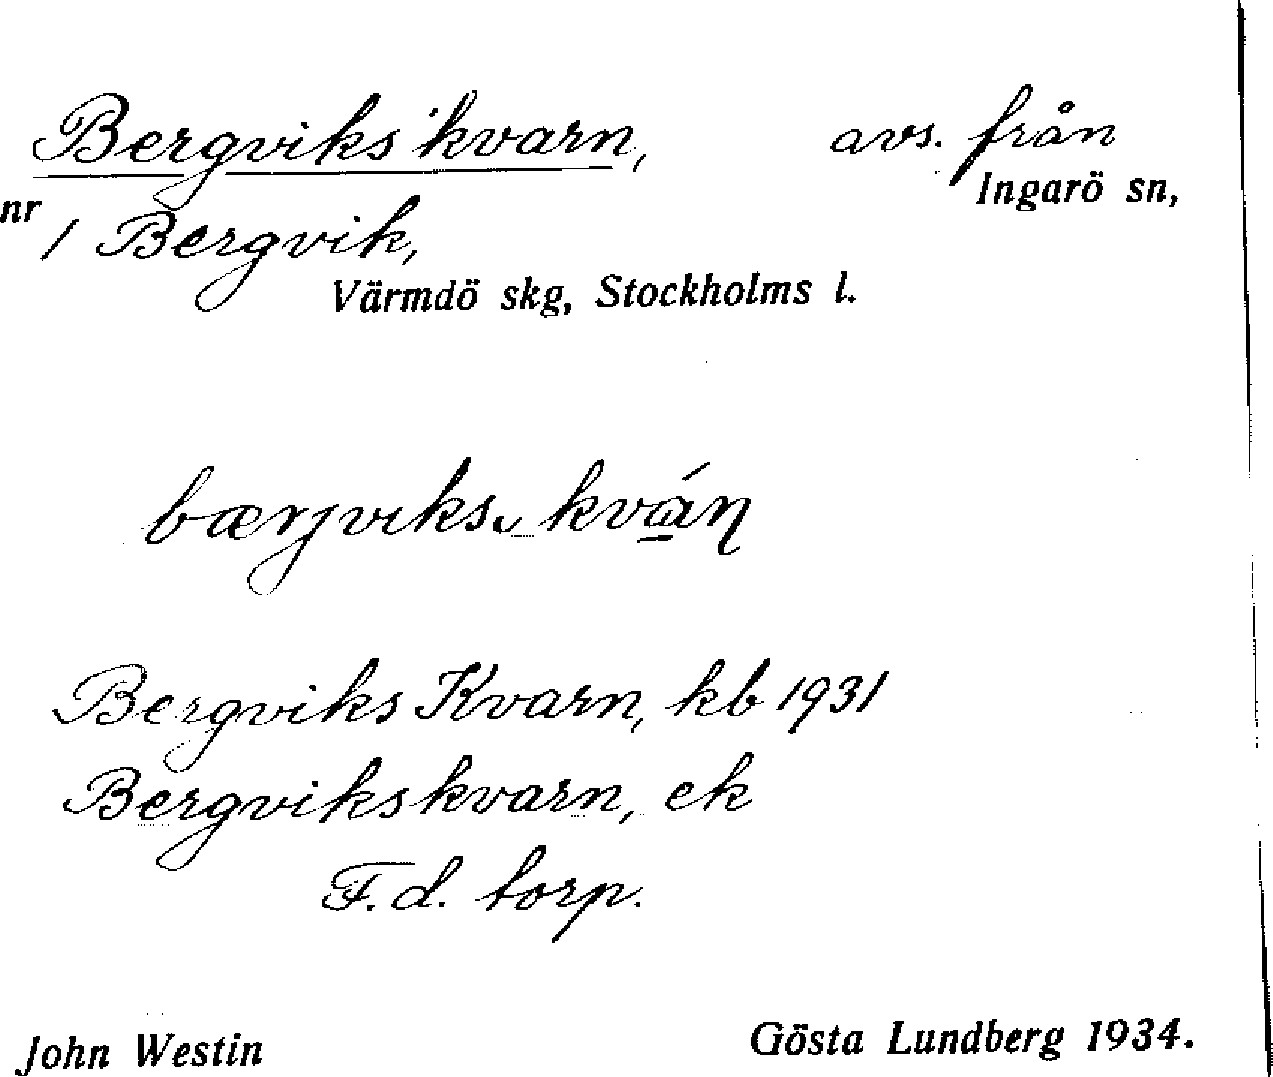 Bergviks kvarn, avs. från
Ingarö sn,
nr 1 Bergvik,
Värmdö skg, Stockholms l.
bærjviks kván
Bergviks Kvarn, kb 1931
Bergvikskvarn, ek
F.d. torp.
John Westin Gösta Lundberg 1934.